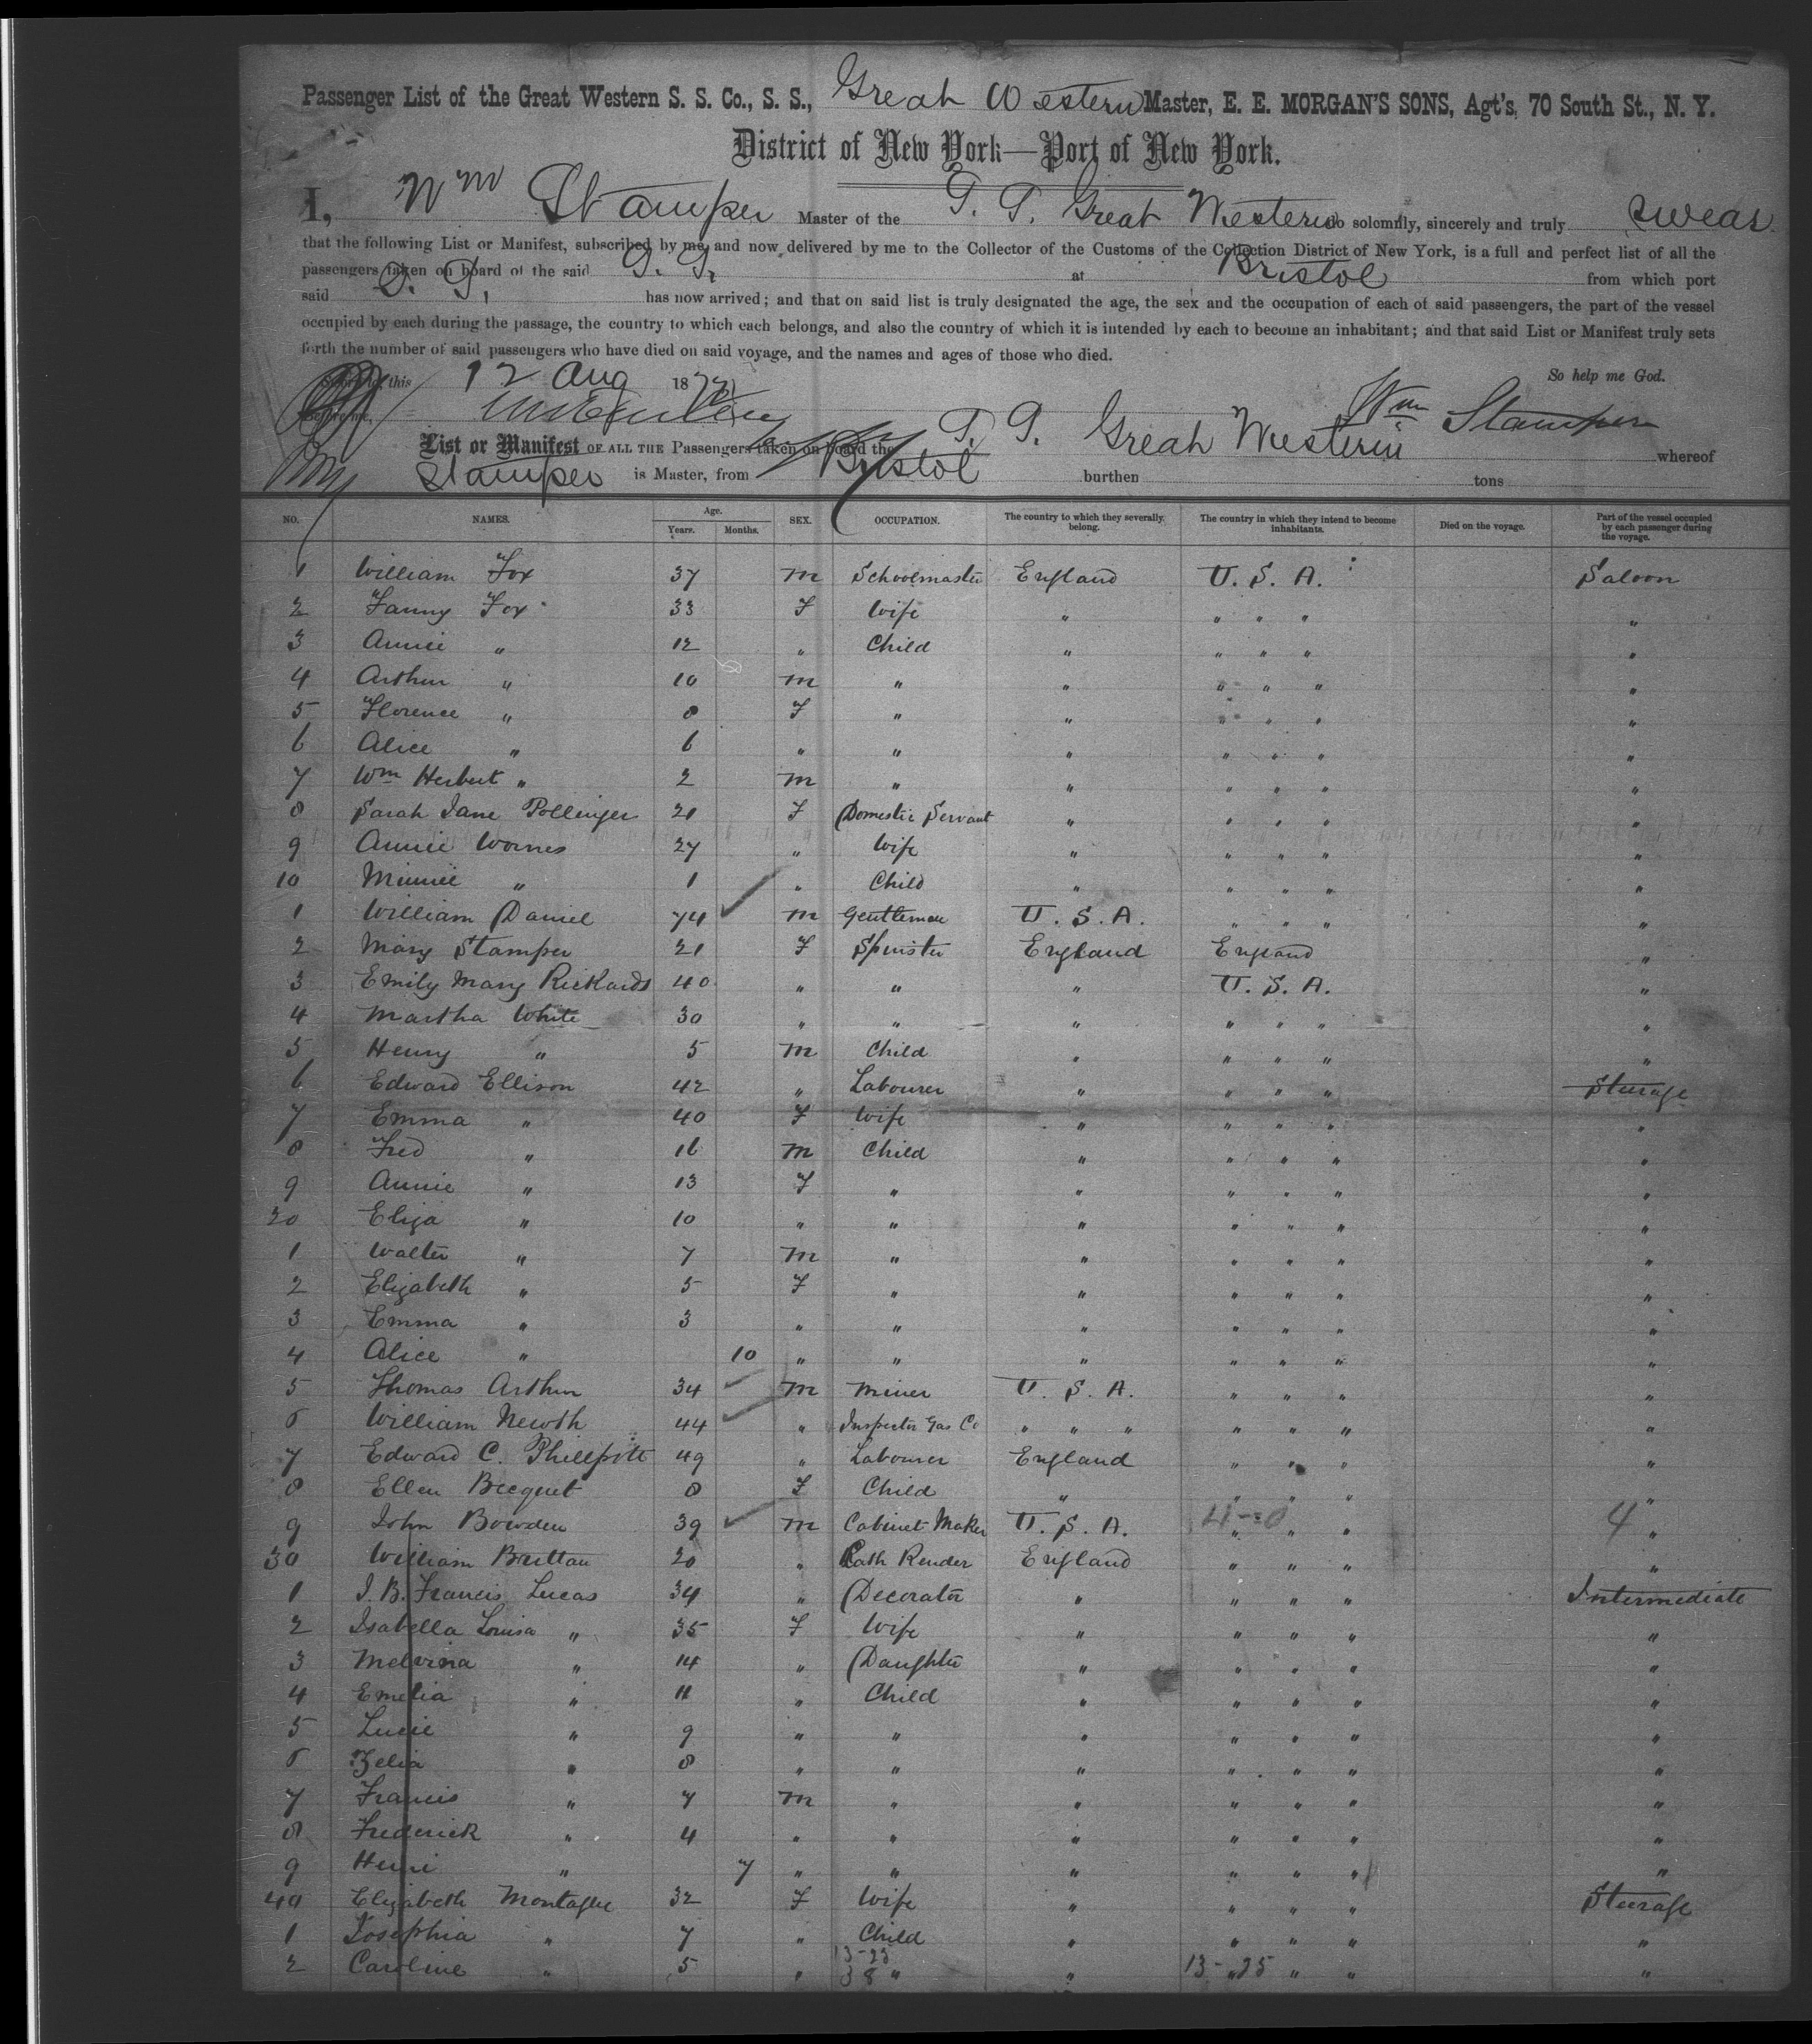 Passenger List of the Great Western S. S. Co., S. S., Great Western Master, E. E. MORGAN'S SONS, Agt's, 70 South St., N. Y.
District of New York—Port of New York.
I, Wm Stamper Master of the S. S. Great Western do solemnly, sincerely and truly swear
that the following List or Manifest, subscribed by me, and now delivered by me to the Collector of the Customs of the Collection District of New York, is a full and perfect list of all the
passengers taken on board of the said S. S. at Bristol from which port
said S. S. has now arrived; and that on said list is truly designated the age, the sex and the occupation of each of said passengers, the part of the vessel
occupied by each during the passage, the country to which each belongs, and also the country of which it is intended by each to become an inhabitant; and that said List or Manifest truly sets
forth the number of said passengers who have died on said voyage, and the names and ages of those who died.
So help me God.
Sworn to, this 12 Aug 18
Before me,
Wm Stamper
List or Manifest OF ALL THE Passengers taken on board the S. S. Great Western whereof
Stamper is Master, from Bristol burthen tons
NO. NAMES. Age. Years. Months. SEX. OCCUPATION. The country to which they severally belong. The country in which they intend to become inhabitants. Died on the voyage. Part of the vessel occupied by each passenger during the voyage.
1 William Fox 37 M Schoolmaster England U. S. A. Saloon
2 Fanny Fox 33 F Wife " " " " "
3 Annie " 12 " Child " " " " "
4 Arthur " 10 M " " " " " "
5 Florence " 8 F " " " " " "
6 Alice " 6 " " " " " " "
7 Wm Herbert " 2 M " " " " " "
8 Sarah Jane Pollinger 21 F Domestic Servant " " " " "
9 Annie Wornes 27 " Wife " " " " "
10 Minnie " 1 " Child " " " " "
1 William Daniel 74 M Gentleman U. S. A. " " " "
2 Mary Stamper 21 F Spinster England England "
3 Emily Mary Rickards 40 " " " U. S. A. "
4 Martha White 30 " " " " " " "
5 Henry " 5 M Child " " " " "
6 Edward Ellison 42 " Labourer " " " " Steerage
7 Emma " 40 F Wife " " " " "
8 Fred " 16 M Child " " " " "
9 Annie " 13 F " " " " " "
20 Eliza " 10 " " " " " " "
1 Walter " 7 M " " " " " "
2 Elizabeth " 5 F " " " " " "
3 Emma " 3 " " " " " " "
4 Alice " 10 " " " " " " "
5 Thomas Arthur 34 M Miner U. S. A. " " " "
6 William Newth 44 " Inspector Gas Co " " " " " " "
7 Edward C. Phillpott 49 " Labourer England " " " "
8 Ellen Becquet 8 F Child " " " " "
9 John Bowden 39 M Cabinet Maker U. S. A. " " " 4 "
30 William Brittan 20 " Lath Render England " " " "
1 J. B. Francis Lucas 34 " Decorator " " " " Intermediate
2 Isabella Louisa " 35 F Wife " " " " "
3 Melvina " 14 " Daughter " " " " "
4 Emelia " 11 " Child " " " " "
5 Lucie " 9 " " " " " " "
6 Zelia " 8 " " " " " " "
7 Francis " 7 M " " " " " "
8 Frederick " 4 " " " " " " "
9 Henri " 7 " " " " " " "
40 Elizabeth Montague 32 F Wife " " " " Steerage
1 Josephia " 7 " Child " " " " "
2 Caroline " 5 " " " " " " "